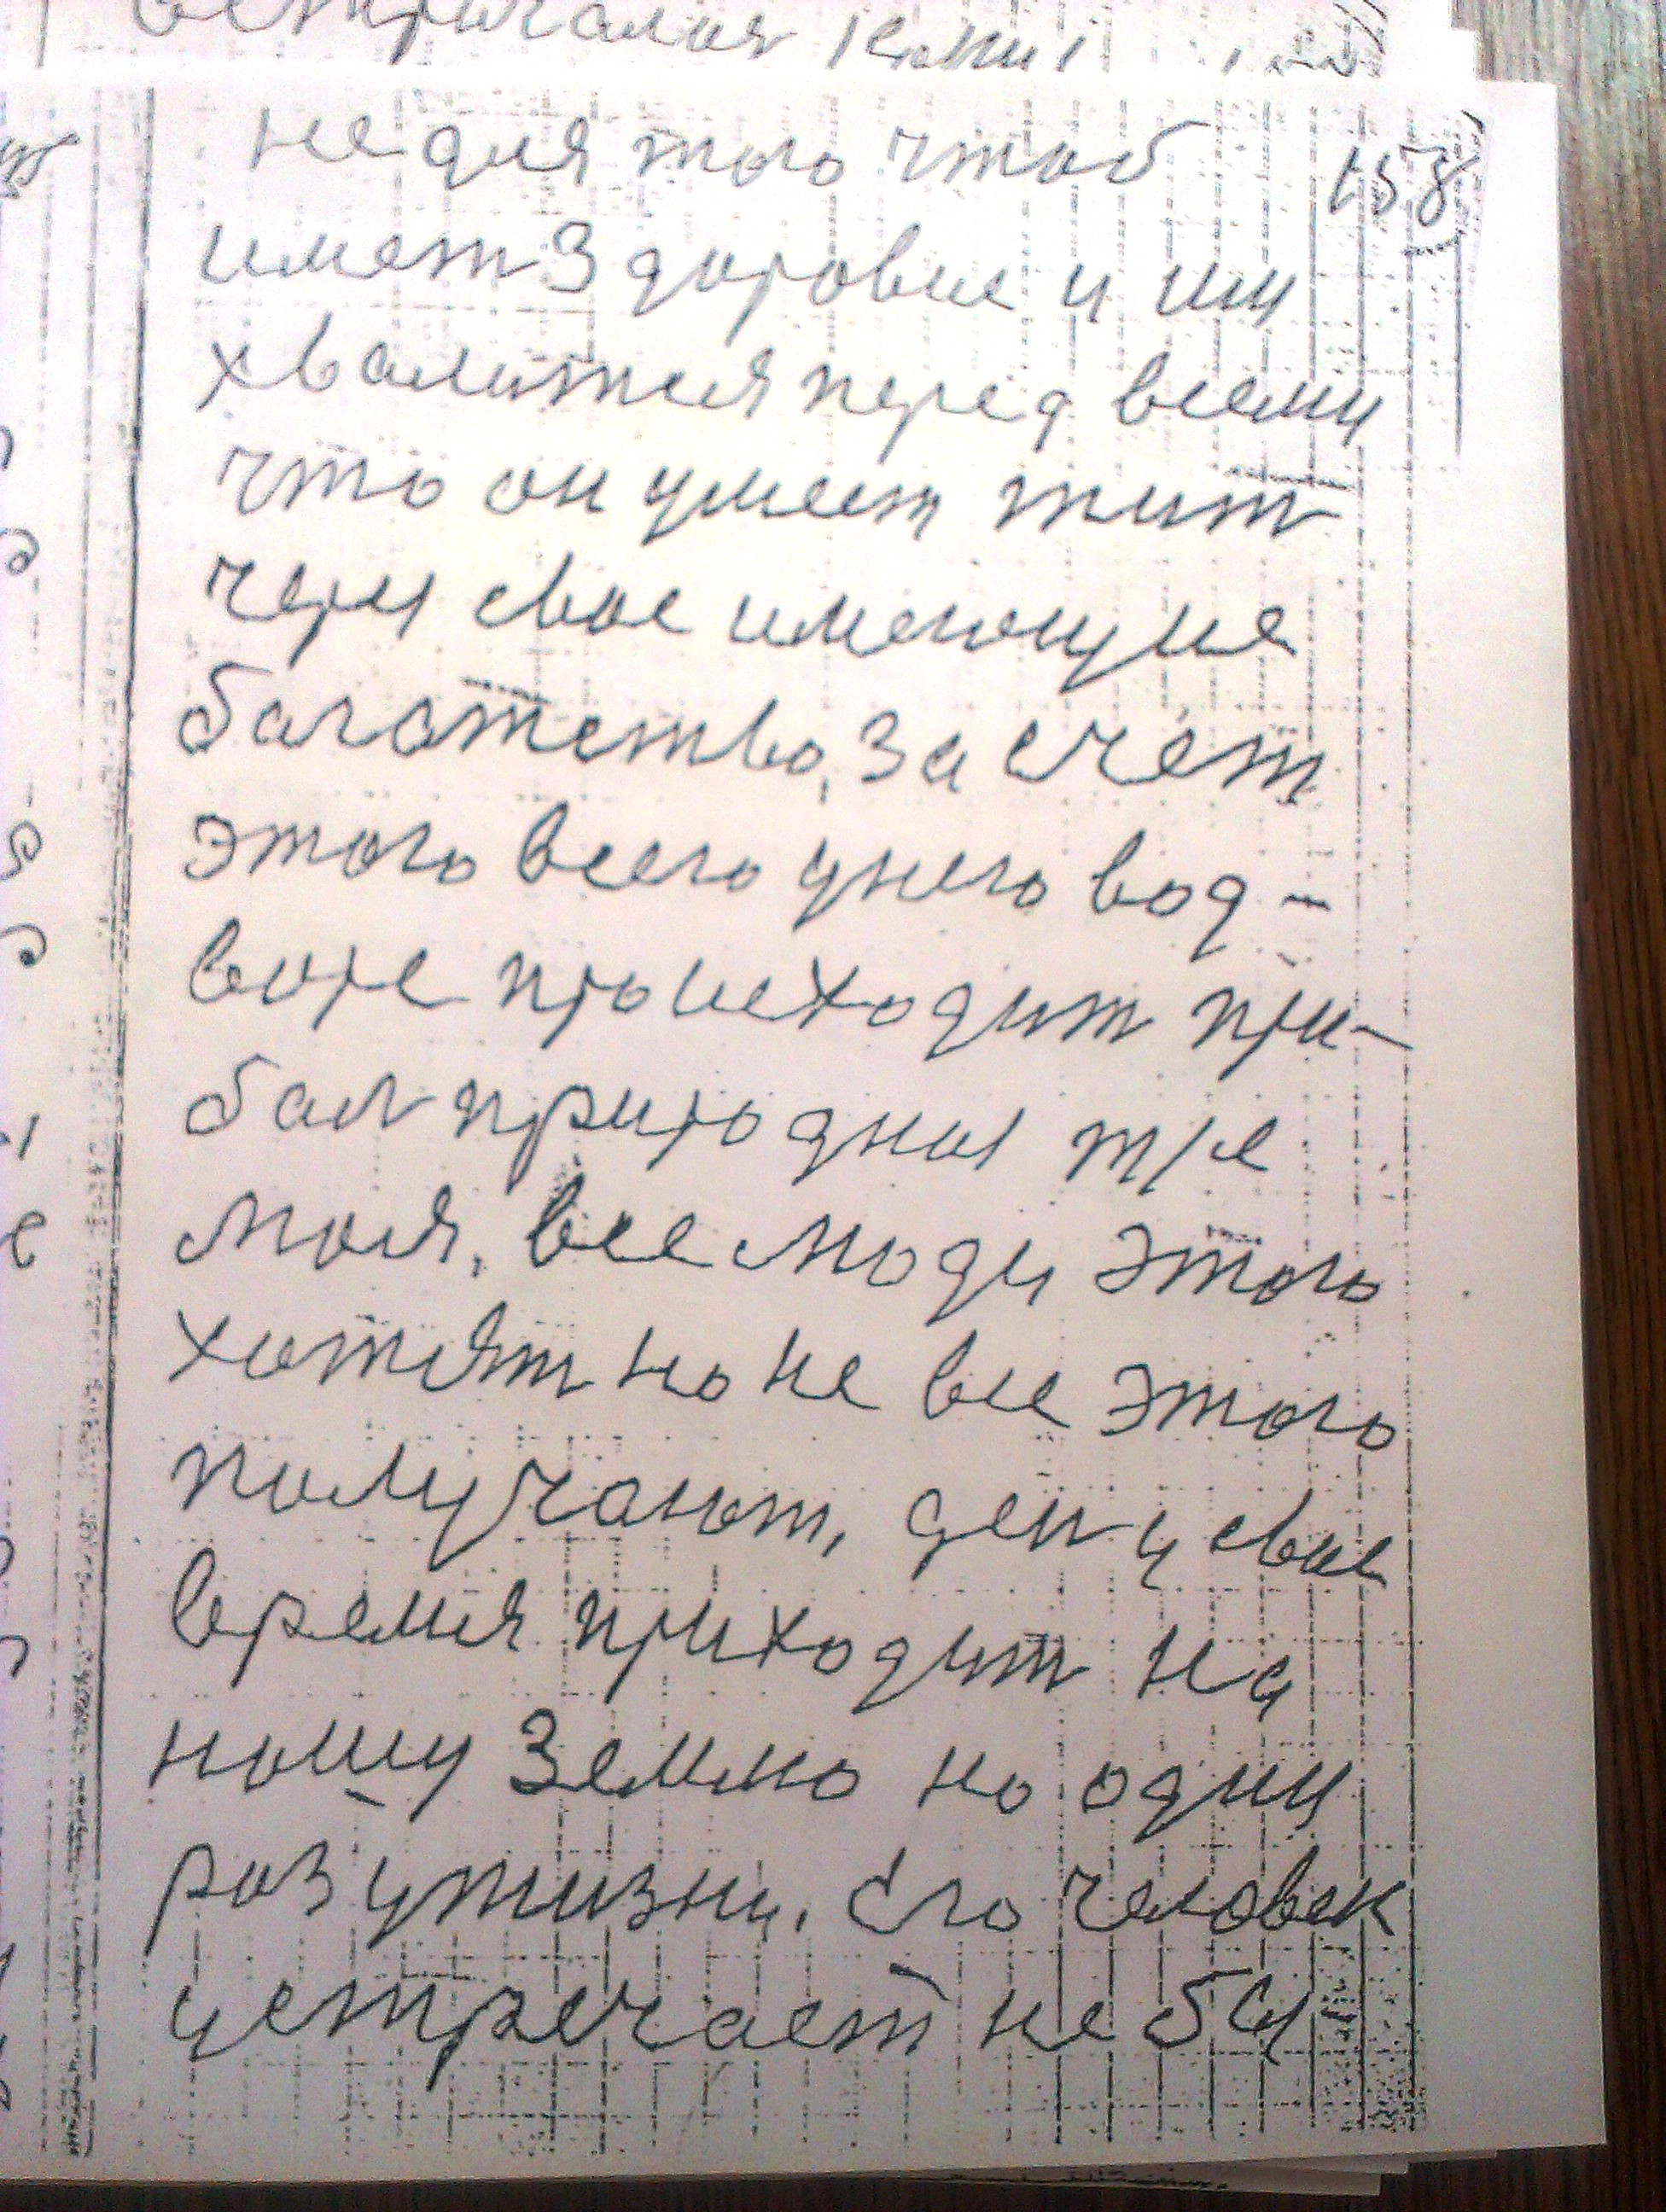 158
не для того чтоб
имет здоровие и им
хвалится перед всеми
что он умеет жит
через свое имеющие
багатство, за счет
этого всего унего вод-
воре происходит при-
бал природны тре
моля, все люди этого
хотят но не все этого
получают, ден у свое
время приходит на
нашу землю но один
раз у жизни, его человек
устречает не бы